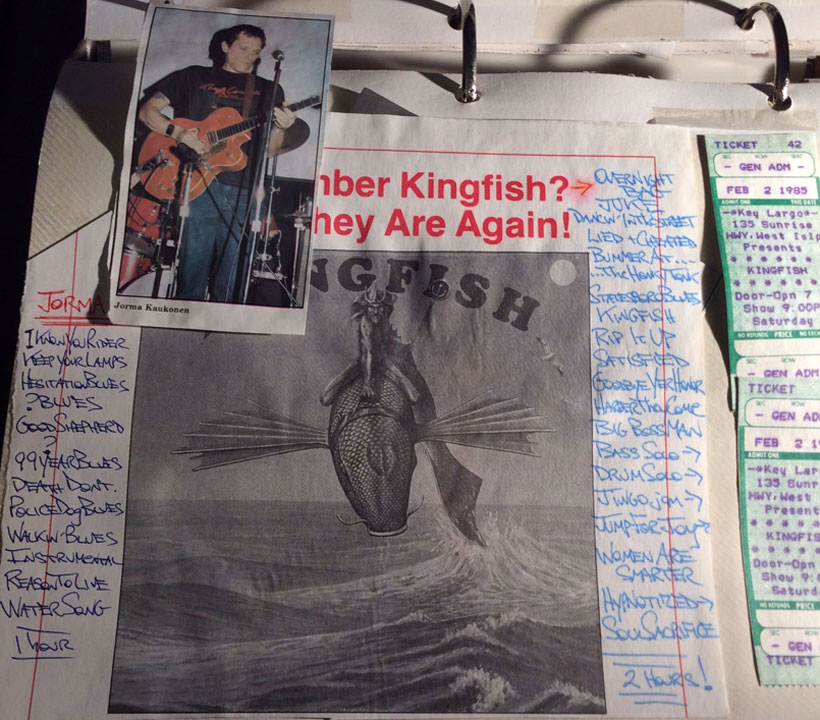 mber Kingfish?
hey Are Again!
NGFISH
Jorma Kaukonen
JORMA
I KNOW YOU RIDER
KEEP YOUR LAMPS
HESITATION BLUES
? BLUES
GOOD SHEPHERD
?
99 YEAR BLUES
DEATH DON'T.
POLICE DOG BLUES
WALKIN' BLUES
INSTRUMENTAL
REASON TO LIVE
WATER SONG
1 HOUR
OVERNIGHT
BAG
JUKE
DANCIN' IN THE STREET
LIED + CHEATED
BUMMER AT...
...THE HONK TONK
STATESBORO BLUES
KINGFISH
RIP IT UP
SATISFIED
GOODBYE YER HONOR
HARDER THEY COME
BIG BOSS MAN
BASS SOLO →
DRUM SOLO →
JINGO JAM →
JUMP FOR JOY?
WOMEN ARE
SMARTER
HYPNOTIZED →
SOUL SACRIFICE
2 HOURS!
TICKET 42
SEC ROW SEAT
- GEN ADM -
FEB 2 1985
ADMIT ONE THIS DATE
-*Key Largo*-
135 Sunrise
HWY. West Islp
Presents
* * * * *
KINGFISH
* * * * *
Door-Opn 7
Show 9:00P
Saturday
NO REFUNDS PRICE NO EXCH
SEC ROW
- GEN ADM
TICKET
SEC ROW
- GEN AD
FEB 2 19
ADMIT ONE
-*Key Lar
135 Sunr
HWY. West
Present
* * * * *
KINGFIS
* * * * *
Door-Opn
Show 9
Saturd
NO REFUNDS PRICE
SEC ROW
- GEN
TICKET